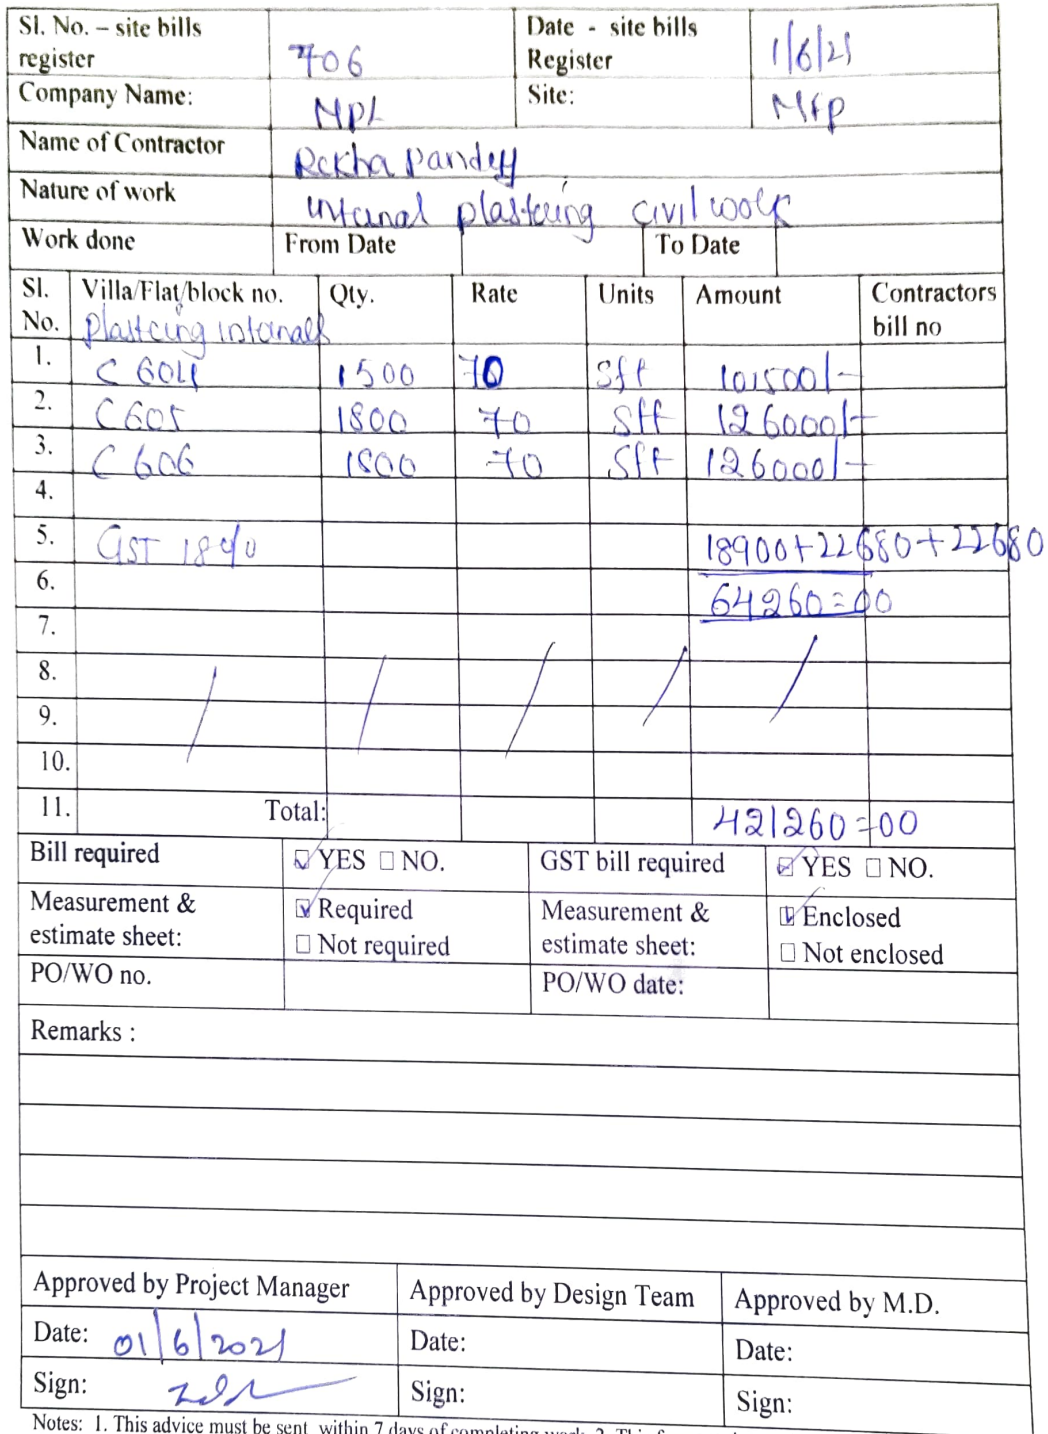 Sl. No. – site bills register 706 Date - site bills Register 1/6/21
Company Name: MPL Site: MFP
Name of Contractor Rekha Pandey
Nature of work internal plasteing civil work
Work done From Date To Date
Sl. No. Villa/Flat/block no. Qty. Rate Units Amount Contractors bill no
Plasteing internall
1. C 604 1500 70 Sft 101500/-
2. C605 1800 70 Sft 126000/-
3. C 606 1800 70 Sft 126000/-
4.
5. GST 18% 18900+22680+22680
6. 64260=00
7.
8.
9.
10.
11. Total: 421260=00
Bill required ☑ YES □ NO. GST bill required ☑ YES □ NO.
Measurement & estimate sheet: ☑ Required Measurement & estimate sheet: ☑ Enclosed
□ Not required □ Not enclosed
PO/WO no. PO/WO date:
Remarks :
Approved by Project Manager Approved by Design Team Approved by M.D.
Date: 01/6/2021 Date: Date:
Sign: Sign: Sign:
Notes: 1. This advice must be sent within 7 days of completing work. 2. This